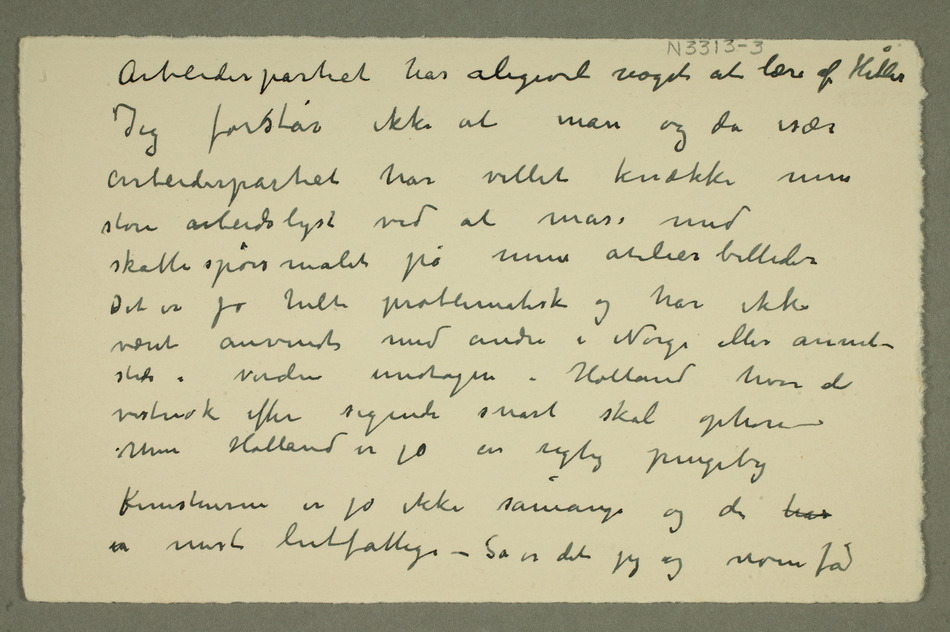 N3313-3
Arbeiderpartiet har aligevel noget at lære af Hitler
Jeg forstår ikke at man og da især
arbeiderpartiet har villet knække min
store arbeidslyst ved at mase med
skattespørsmalet på mine atelierbilleder
Det er jo helt problematisk og har ikke
været anvendt med andre i Norge eller annet-
steds i verden undtagen i Holland hvor de
vistnok efter sigende snart skal ophøre –
Men Holland er jo en rigtig pengeby
Kunstnerne er jo ikke såmange og de har
er mest lutfattige – Så er det jeg og noen få